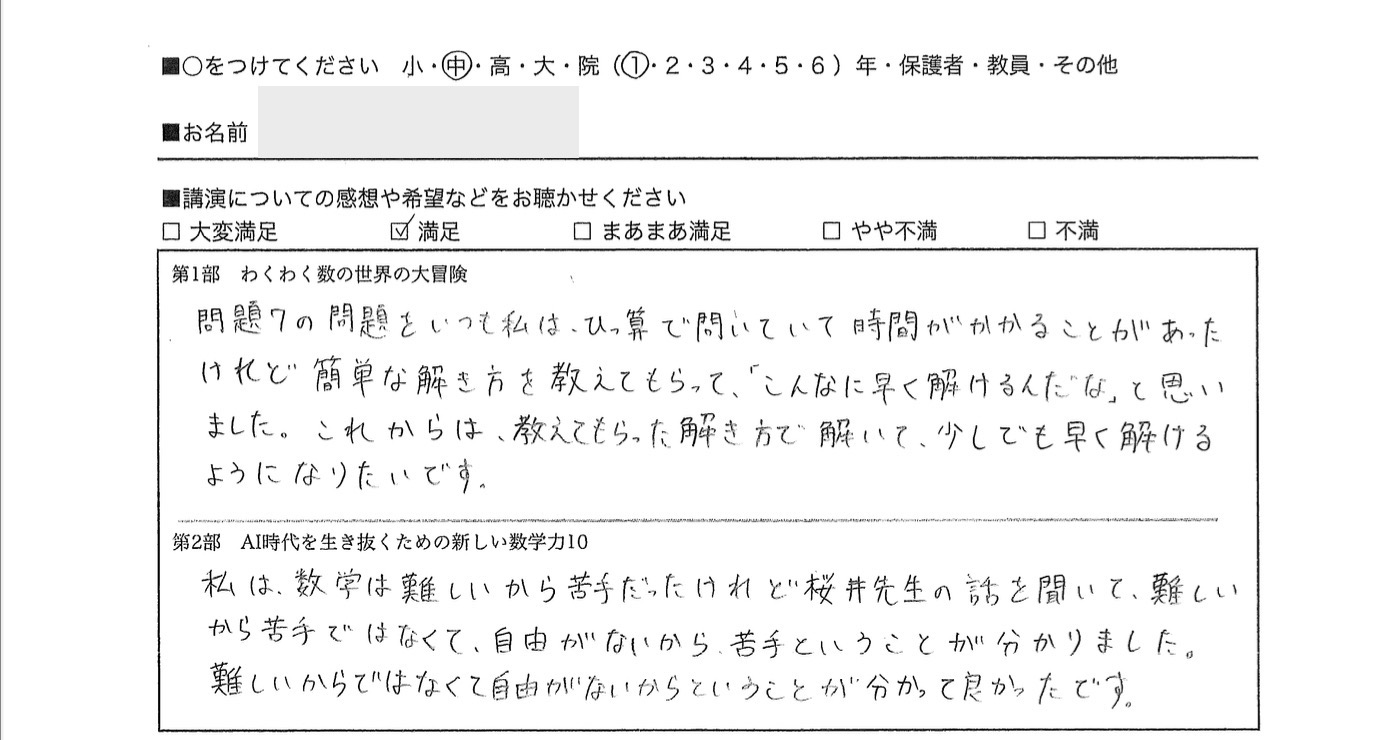 ■○をつけてください 小・中・高・大・院（1・2・3・4・5・6）年・保護者・教員・その他
■お名前
■講演についての感想や希望などをお聴かせください
□ 大変満足 ☑ 満足 □ まあまあ満足 □ やや不満 □ 不満
第1部 わくわく数の世界の大冒険
問題7の問題をいつも私は、ひっ算で問いていて時間がかかることがあった
けれど簡単な解き方を教えてもらって、「こんなに早く解けるんだな」と思い
ました。これからは、教えてもらった解き方で解いて、少しでも早く解ける
ようになりたいです。
第2部 AI時代を生き抜くための新しい数学力10
私は、数学は難しいから苦手だったけれど桜井先生の話を聞いて、難しい
から苦手ではなくて、自由がないから、苦手ということが分かりました。
難しいからではなくて自由がないからということが分かって良かったです。